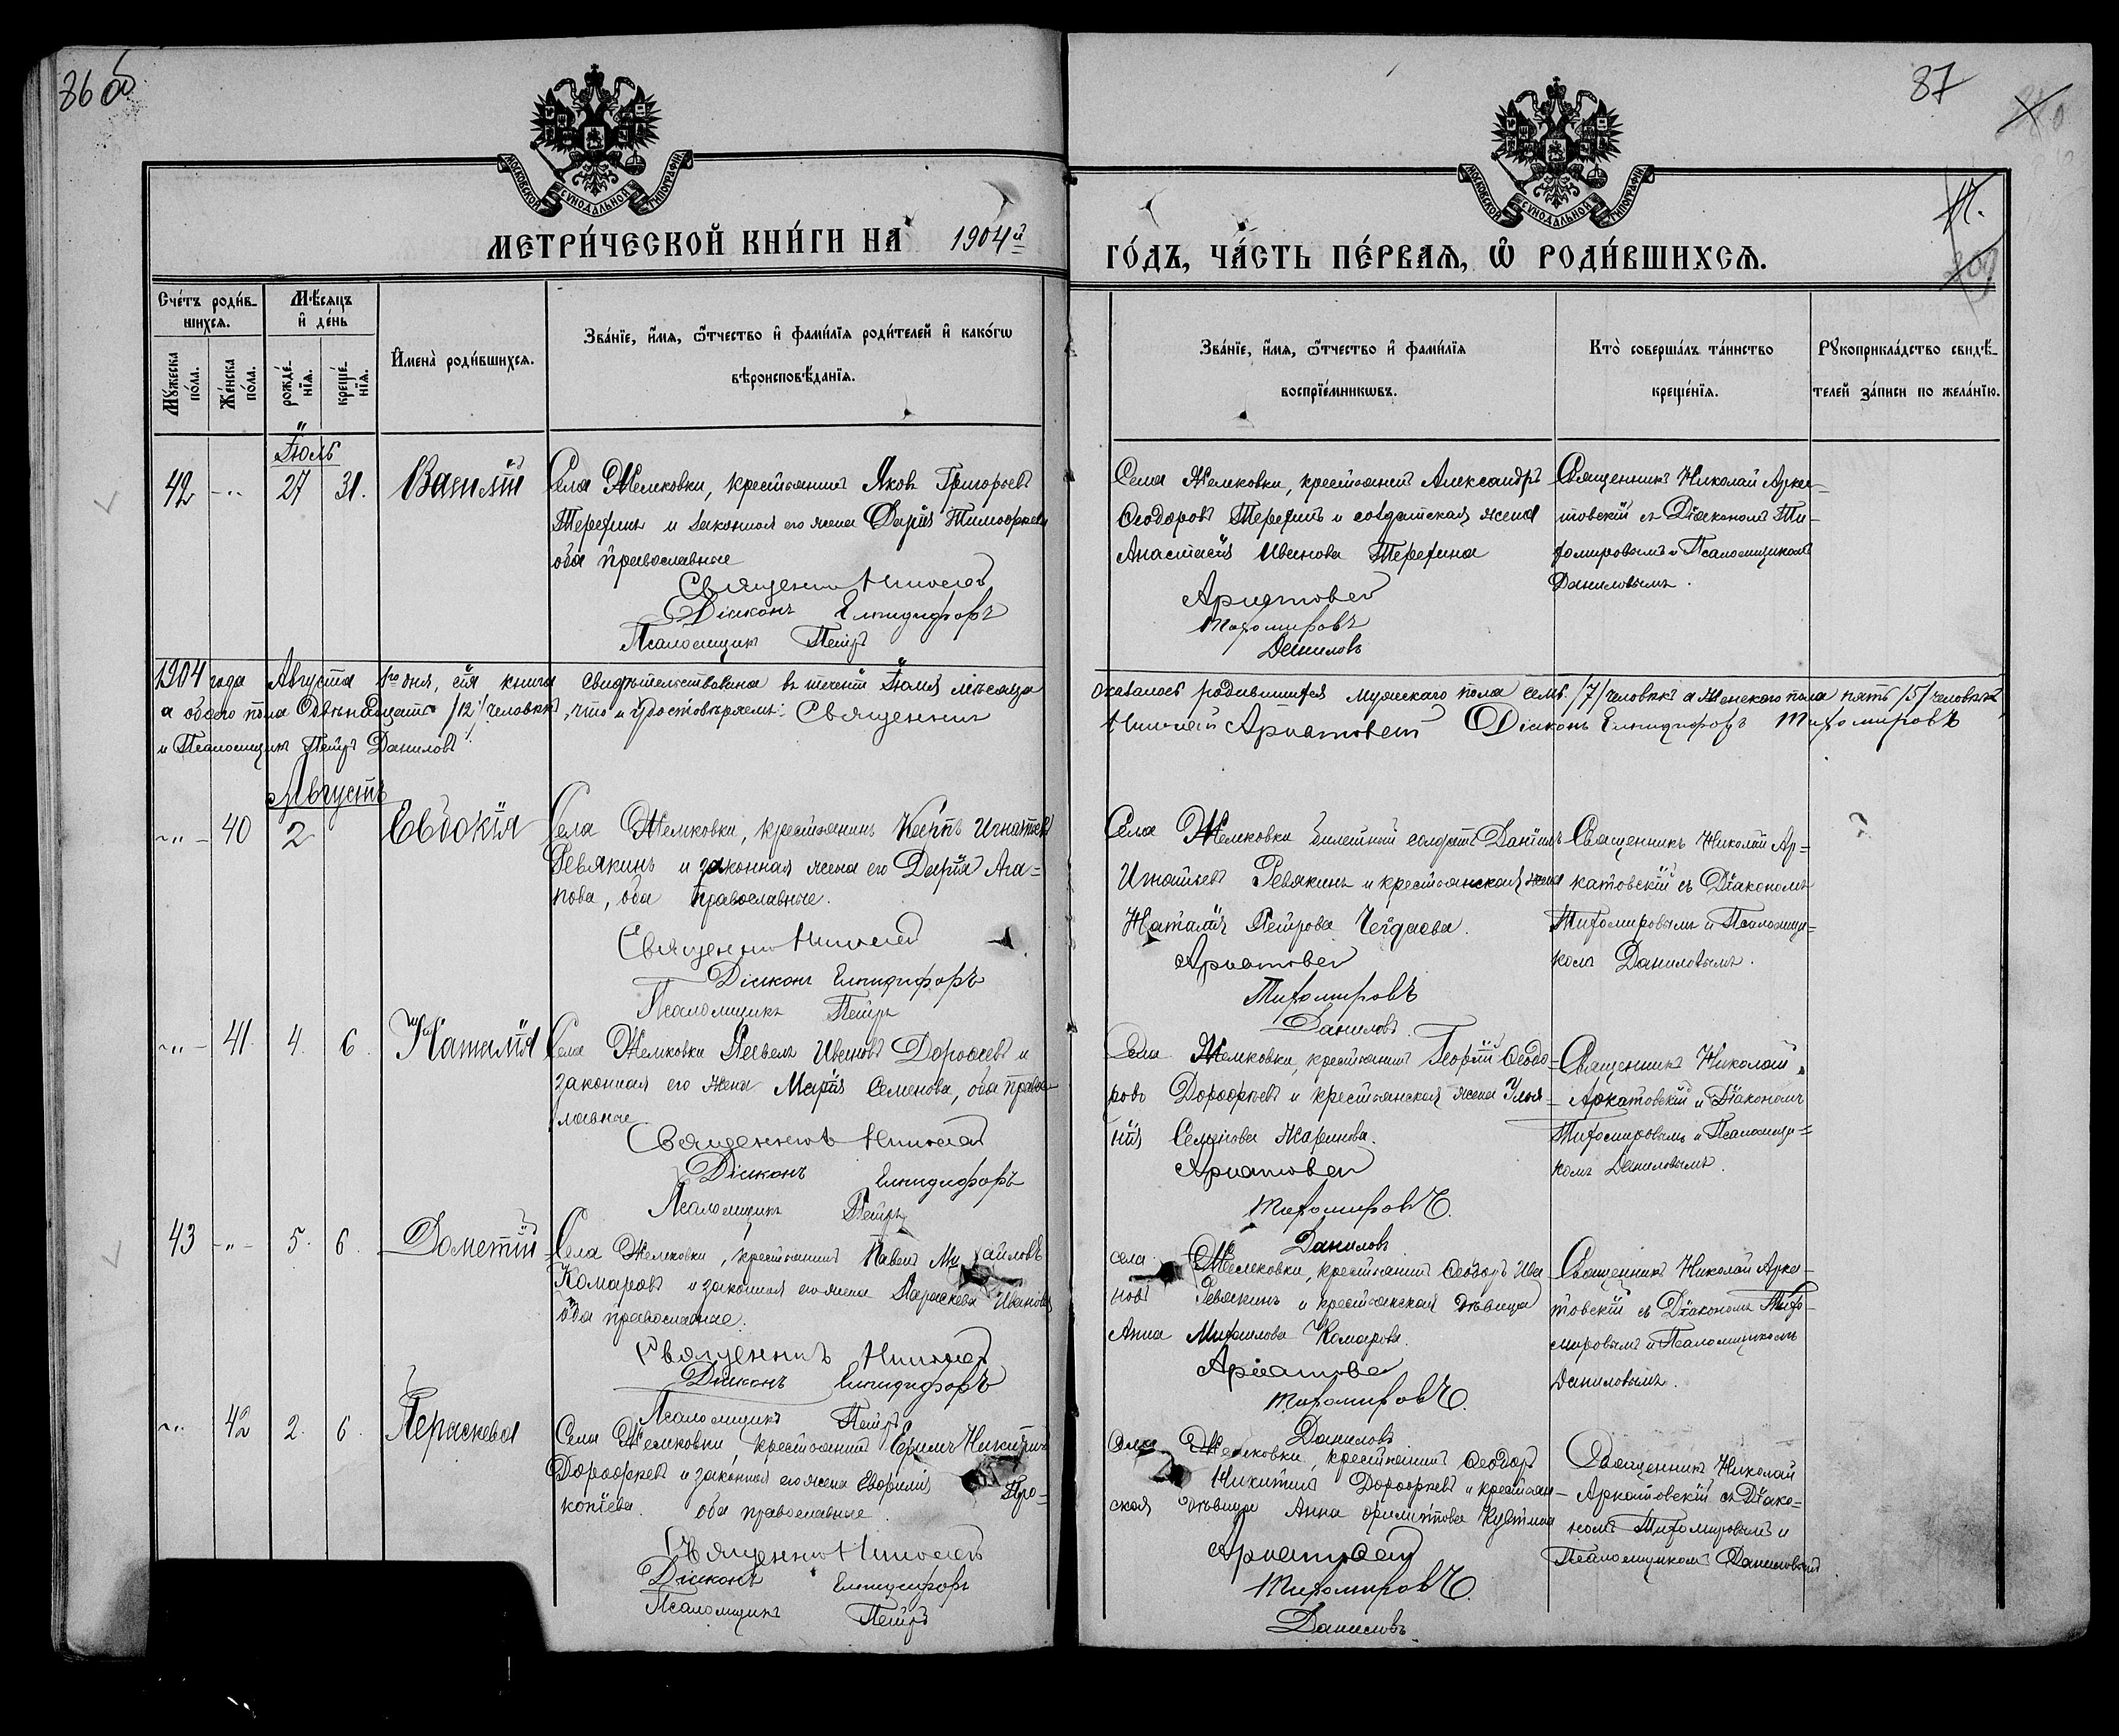 86 об
87
МОСКОВСКОЙ СѴНОДАЛЬНОЙ ТИПОГРАФІИ
МОСКОВСКОЙ СѴНОДАЛЬНОЙ ТИПОГРАФІИ
МЕТРИ́ЧЕСКОЙ КНИ́ГИ НА 1904й ГО́ДЪ, ЧА́СТЬ ПЕ́РВАЯ, Ѡ҆ РОДИ́ВШИХСЯ.
Сче́тъ роди́вшихся.
Мѣ́сяцъ и҆ де́нь
Мꙋ́жеска по́ла.
Же́нска по́ла.
рожде́нїя.
креще́нїя.
И҆мена̀ роди́вшихся.
Зва́нїе, и҆́мя, ѻ҆́тчество и҆ фами́лїя роди́телей и҆ како́гѡ
вѣроисповѣ́данїя.
Зва́нїе, и҆́мя, ѻ҆́тчество и҆ фами́лїя
воспрїе́мникѡвъ.
Кто̀ соверша́лъ та́инство
креще́нїя.
Рꙋкоприкла́дство свидѣ́телей за́писи по жела́нїю.
Іюль
42 -"- 27 31. Василій
Села Жемковки, крестьянинъ Яковъ Григорьевъ
Терехинъ и законная его жена Дарія Тимоѳеева
оба православные
Священникъ Николай
Діаконъ Елпидифоръ
Псаломщикъ Петръ
Села Жемковки, крестьянинъ Александръ
Ѳеодоровъ Терехинъ и солдатская жена
Анастасія Иванова Терехина
Аркатовскій
Тихомировъ
Даниловъ
Священникъ Николай Арка-
товскій съ Діакономъ Ти-
хомировымъ и Псаломщикомъ
Даниловымъ.
1904 года Августа 1го дня, сія книга свидѣтельствована въ теченіи Іюля мѣсяца оказалось родившихся мужескаго пола семь /7/ человѣкъ а женскаго пола пять /5/ человѣкъ,
а обоего пола двѣнадцать /12/ человѣкъ, что и удостовѣряемъ: Священникъ Николай Аркатовскій Діаконъ Елпидифоръ Тихомировъ
и Псаломщикъ Петръ Даниловъ.
Августъ
-"- 40 2 Евдокія
Села Жемковки, крестьянинъ Карпъ Игнатьевъ
Ревякинъ и законная жена его Дарія Ага-
пова, оба православные.
Священникъ Николай
Діаконъ Елпидифоръ
Псаломщикъ Петръ
Села Жемковки билетный солдатъ Даніилъ
Игнатьевъ Ревякинъ и крестьянская жена
Наталія Петрова
Аркатовскій
Тихомировъ
Даниловъ.
Священникъ Николай Ар-
катовскій съ Діакономъ
Тихомировымъ и Псаломщи-
комъ Даниловымъ.
-"- 41. 4. 6. Наталія
Села Жемковки Павелъ Ивановъ Дороѳеевъ и
законная его жена Марія Семенова, оба право-
славные
Священникъ Николай
Діаконъ Елпидифоръ
Псаломщикъ Петръ
Села Жемковки, крестьянинъ Георгій Ѳеодо-
ровъ Дороѳеевъ и крестьянская жена Улья-
нія Семенова
Аркатовскій
Тихомировъ.
Даниловъ
Священникъ Николай
Аркатовскій и Діакономъ
Тихомировымъ и Псаломщи-
комъ Даниловымъ.
43 -"- 5. 6. Дометій
Села Жемковки, крестьянинъ Павелъ Михайловъ
Комаровъ и законная его жена Параскева Иванова
оба православные.
Священникъ Николай
Діаконъ Елпидифоръ
Псаломщикъ Петръ
села Жемковки, крестьянинъ Ѳеодоръ Ива-
новъ Ревякинъ и крестьянская дѣвица
Анна Михаилова Комарова.
Аркатовскій
Тихомировъ.
Даниловъ
Священникъ Николай Арка-
товскій съ Діакономъ Тихо-
мировымъ и Псаломщикомъ
Даниловымъ.
-"- 42 2. 6. Параскева
Села Жемковки, крестьянинъ Ефимъ Никитинъ
Дороѳеевъ и законная его жена Евфимія Про-
копіева. оба православные.
Священникъ Николай
Діаконъ Елпидифоръ
Псаломщикъ Петръ
Села Жемковки, крестьянинъ Ѳеодоръ
Никитинъ Дороѳеевъ и крестьян-
ская дѣвица Анна
Аркатовскій
Тихомировъ.
Даниловъ.
Священникъ Николай
Аркатовскій съ Діако-
номъ Тихомировымъ и
Псаломщикомъ Даниловымъ